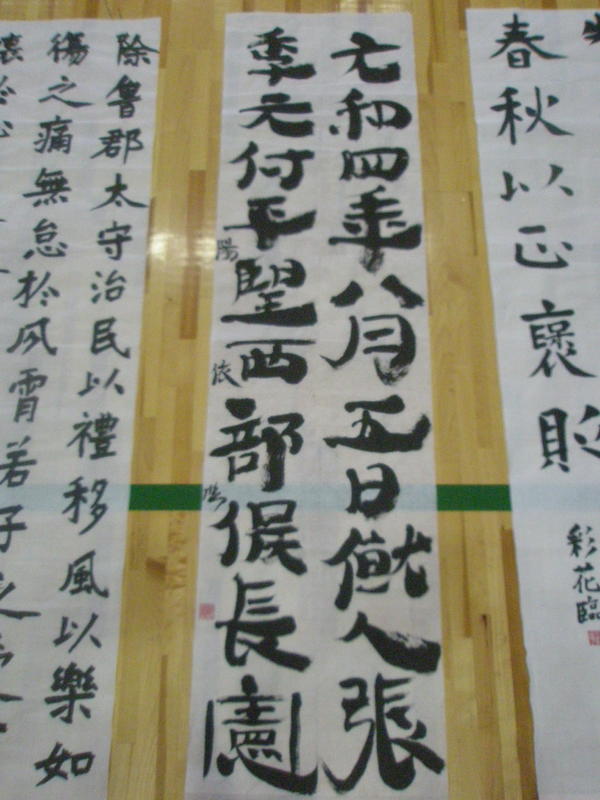 春秋以正褒貶
彩花臨
元和四年八月五日僦人張
季元付平望西部候長憲
陽依
除魯郡太守治民以禮移風以樂如
傷之痛無怠於夙宵若子之